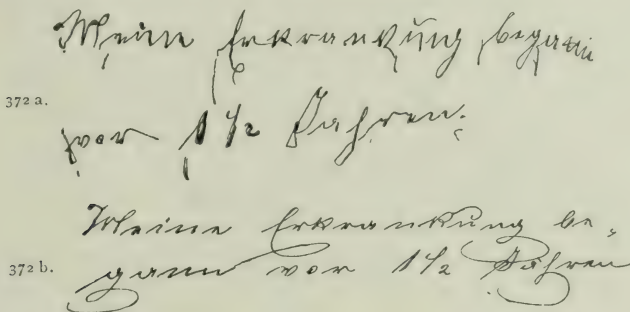 Meine Erkrankung begann
372 a.
vor 1 1/2 Jahren.
Meine Erkrankung be-
372 b.
gann vor 1 1/2 Jahren